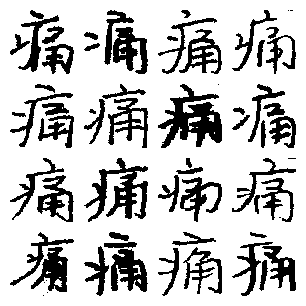 痛痛痛痛
痛痛痛痛
痛痛痛痛
痛痛痛痛